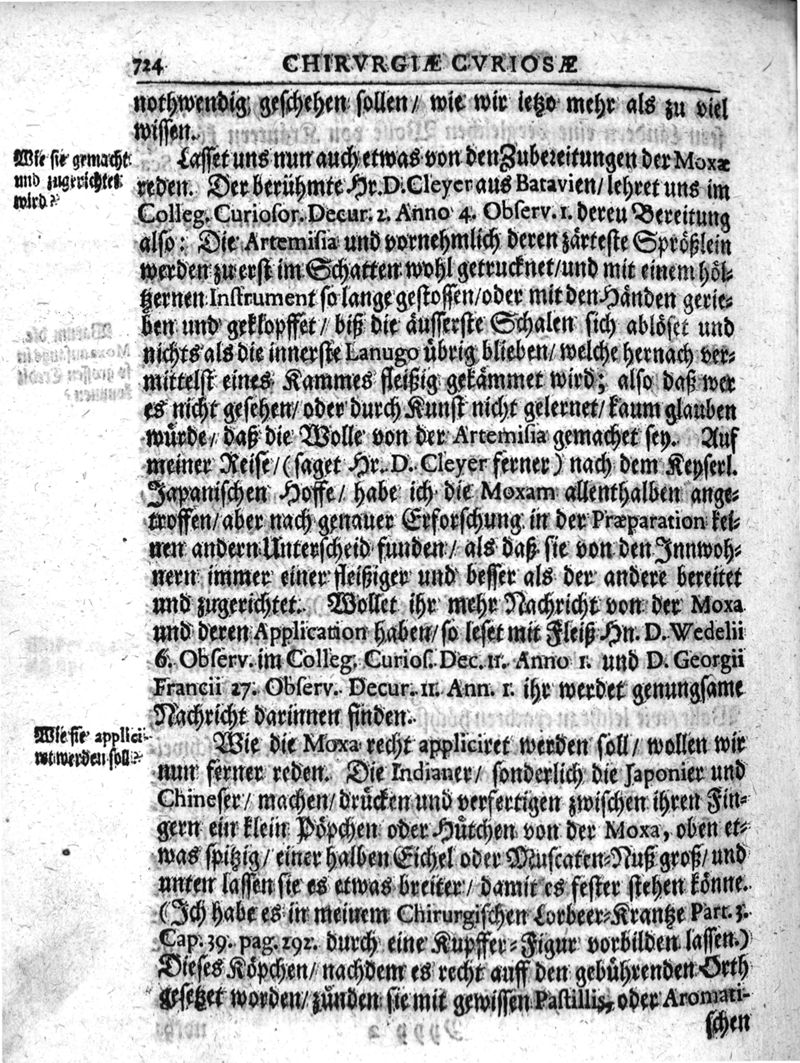 724 CHIRVRGIÆ CVRIOSÆ
nothwendig geschehen sollen/ wie wir ietzo mehr als zu viel
wissen.
Wie sie gemacht
und zugerichtet
wird?
Lasset uns nun auch etwas von den Zubereitungen der Moxæ
reden. Der berühmte Hr. D. Cleyer aus Batavien/ lehret uns im
Colleg. Curiosor. Decur. 2. Anno 4. Observ. 1. dereu Bereitung
also: Die Artemisia und vornehmlich deren zärteste Sprößlein
werden zu erst im Schatten wohl getrucknet/ und mit einem höl-
tzernen Instrument so lange gestossen/ oder mit den Händen gerie-
ben und geklopffet/ biß die äusserste Schalen sich ablöset und
nichts als die innerste Lanugo übrig blieben/ welche hernach ver-
mittelst eines Kammes fleißig gekämmet wird; also daß wer
es nicht gesehen/ oder durch Kunst nicht gelernet/ kaum glauben
würde/ daß die Wolle von der Artemisia gemachet sey. Auf
meiner Reise/ (saget Hr. D. Cleyer ferner) nach dem Keyserl.
Japanischen Hoffe/ habe ich die Moxam allenthalben ange-
troffen/ aber nach genauer Erforschung in der Præparation kei-
nen andern Unterscheid funden/ als daß sie von den Innwoh-
nern immer einer fleißiger und besser als der andere bereitet
und zugerichtet. Wollet ihr mehr Nachricht von der Moxa
und deren Application haben/ so leset mit Fleiß Hn. D. Wedelii
6. Observ. im Colleg. Curios. Dec. 11. Anno 1. und D. Georgii
Francii 27. Observ. Decur. 11. Ann. 1. ihr werdet genungsame
Nachricht darinnen finden.
Wie sie applici-
ret werden soll?
Wie die Moxa recht appliciret werden soll/ wollen wir
nun ferner reden. Die Indianer/ sonderlich die Japonier und
Chineser/ machen/ drücken und verfertigen zwischen ihren Fin-
gern ein klein Pöpchen oder Hütchen von der Moxa, oben et-
was spitzig/ einer halben Eichel oder Muscaten-Nuß groß/ und
unten lassen sie es etwas breiter/ damit es fester stehen könne.
(Ich habe es in meinem Chirurgischen Lorbeer-Krantze Part. 3.
Cap. 39. pag. 292. durch eine Kupffer-Figur vorbilden lassen.)
Dieses Köpchen/ nachdem es recht auff den gebührenden Orth
gesetzet worden/ zünden sie mit gewissen Pastillis, oder Aromati-
schen